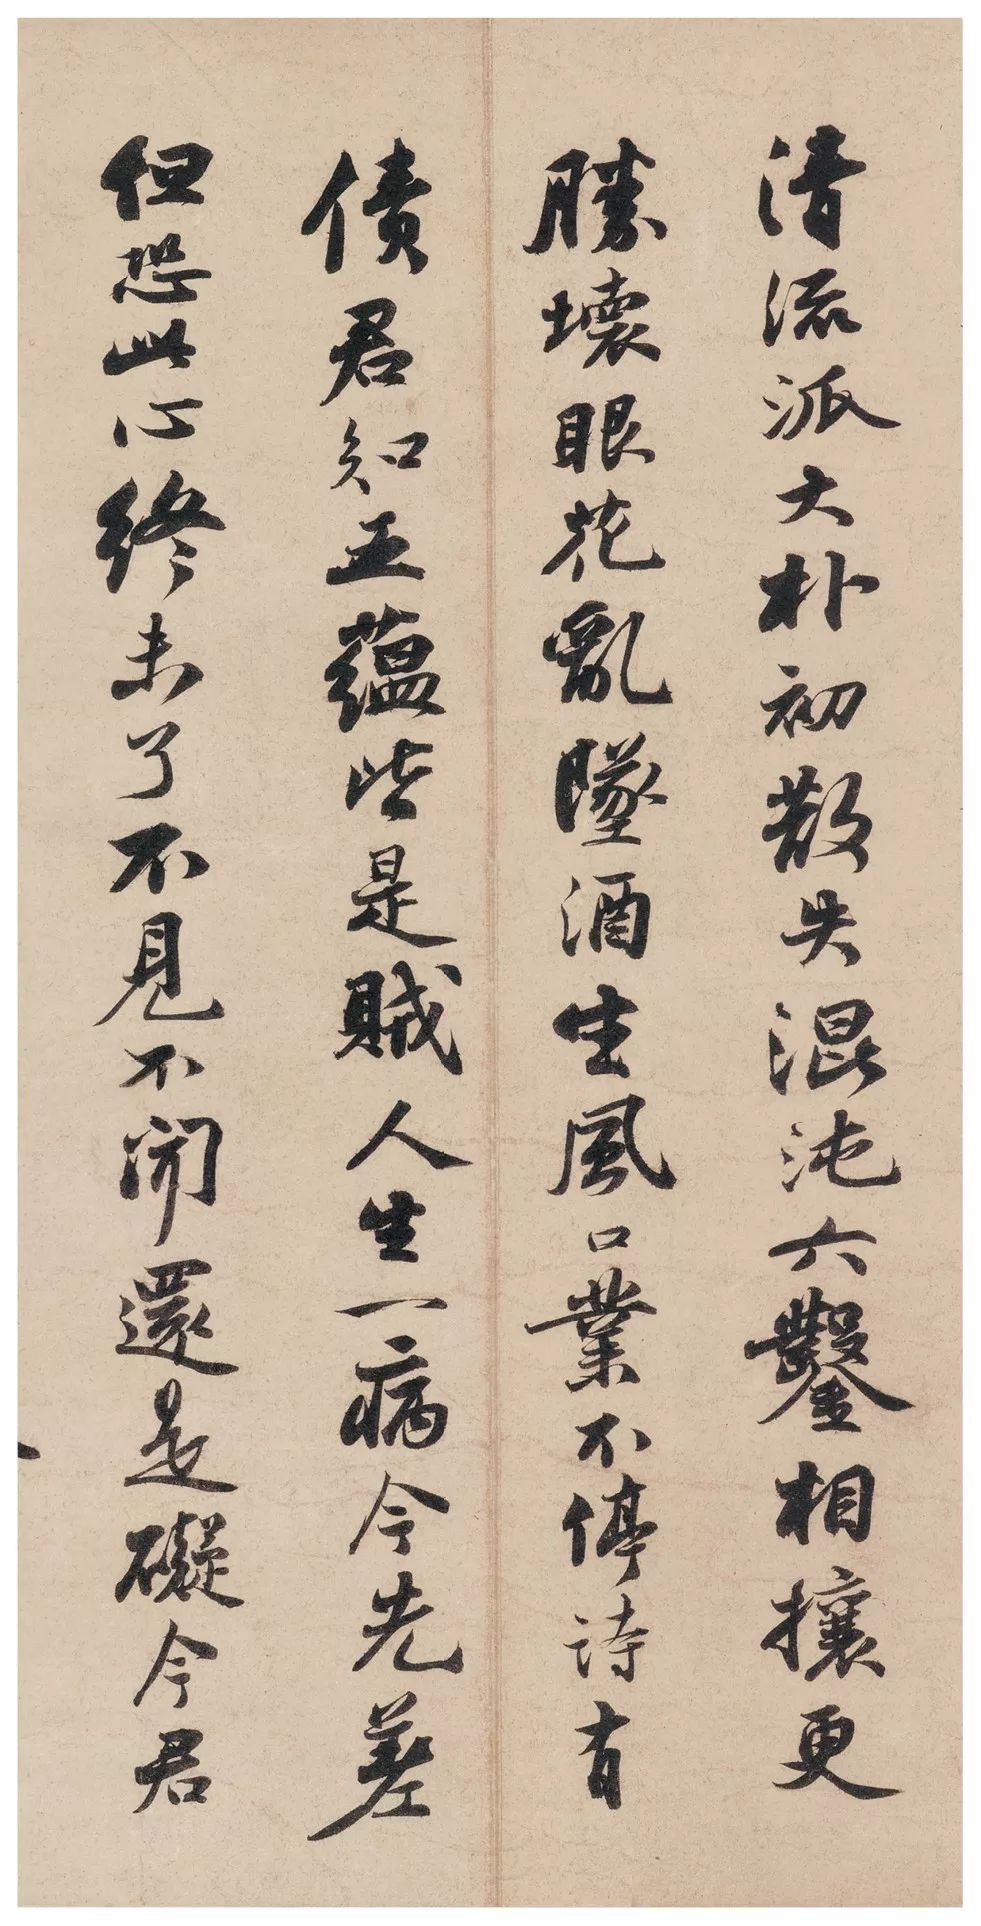 清流派大朴初散失混沌六鑿相攘更
勝壞眼花亂墜酒生風口業不停詩有
債君知五蘊皆是賊人生一病今先差
但恐此心終未了不見不聞還是礙今君